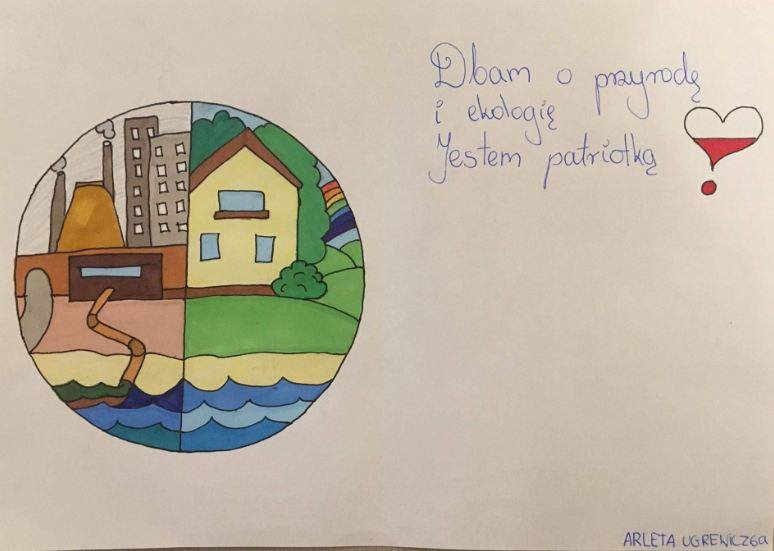 Dbam o przyrodę
i ekologię
Jestem patriotką
ARLETA UGREWICZ6a